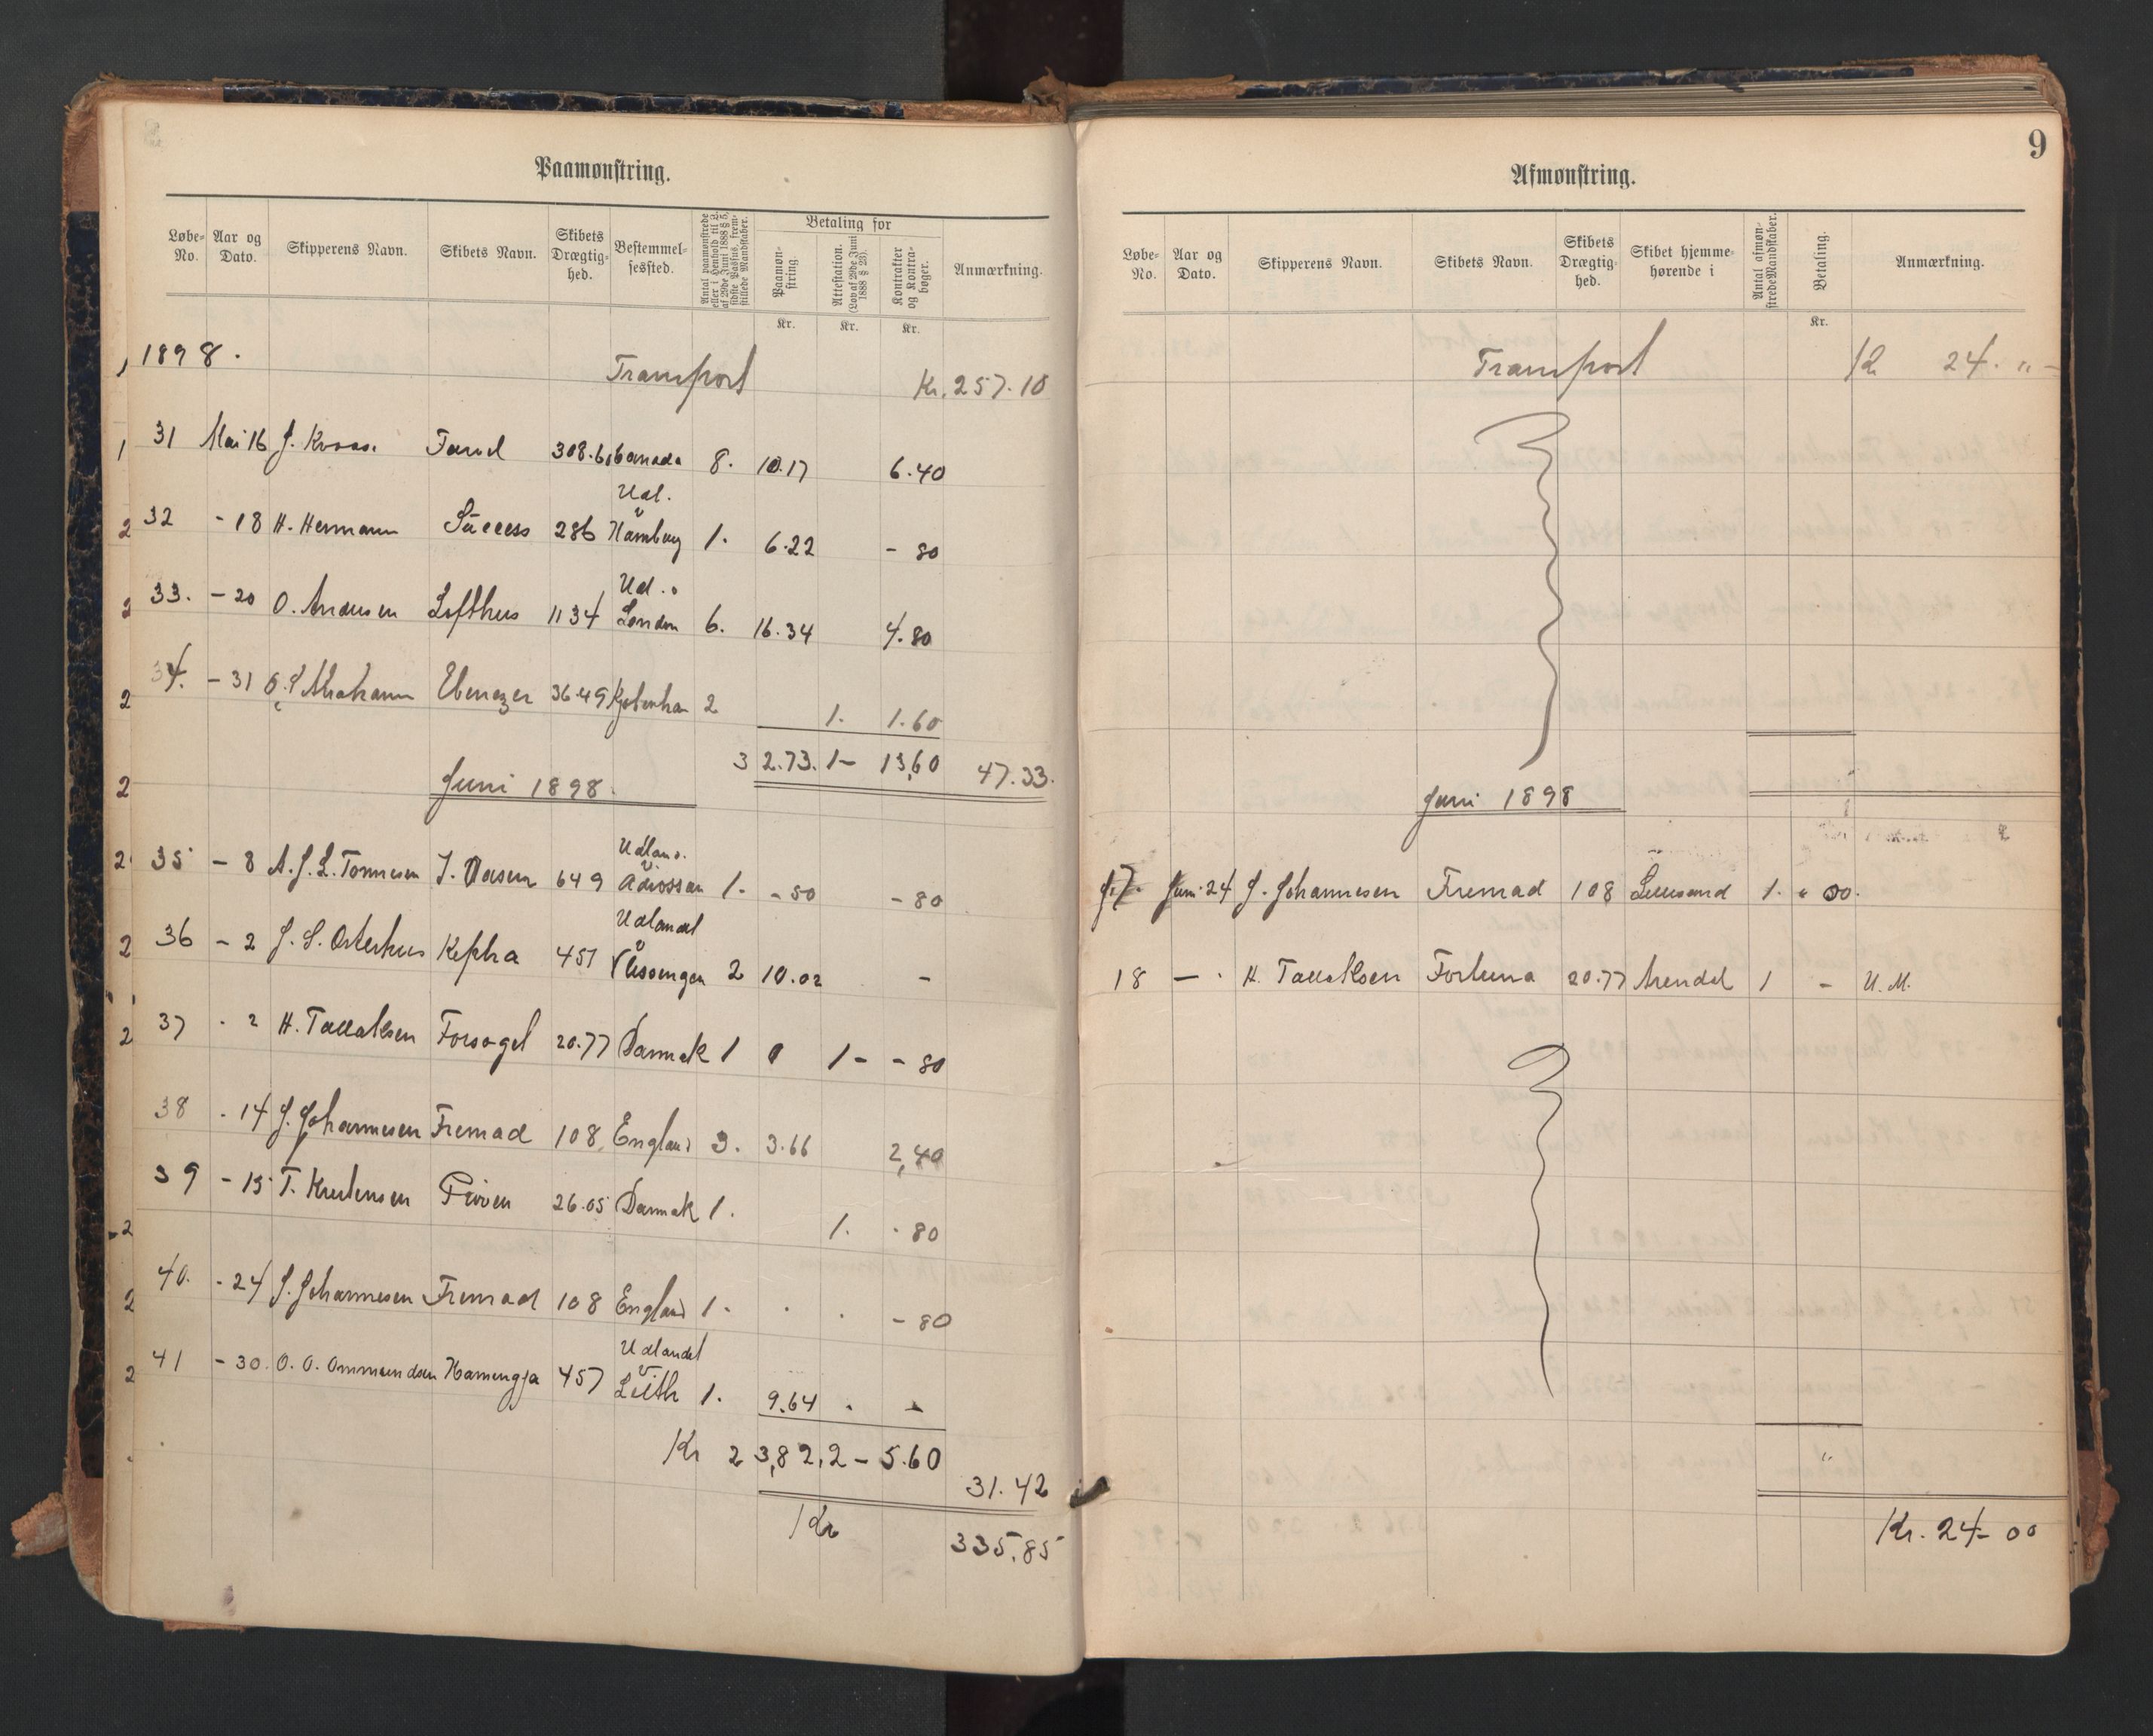 Paamønstring.
Løbe-No. Aar og Dato. Skipperens Navn. Skibets Navn. Skibets Drægtig-hed. Bestemmel-sessted. Antal paamønstrede eller i Henhold til L. af 29de Juni 1888 § 5, sidste Passus, frem-stillede Mandskaber. Betaling for Paamøn-string. Attestation. (Lov af 29de Juni 1888 § 23). Kontrakter og Kontra-bøger. Anmærkning.
Kr. Kr. Kr.
1898.
Transport Kr. 257.10
31 Mai 16 J. 308.60 Canada 8. 10.17 6.40
32 - 18 H. Hermann Success 286 Udl. Hamburg 1. 6.22 - 80
33. - 20 O. Andersen Lofthus 1134 Ud. London 6. 16.34 4.80
34. - 31 Ebenezer 36.49 2 1. 1.60
32.73. 1- 13,60 47.33.
Juni 1898.
35 - 8 A. J. L. Tønnesen 649 1. - 50 - 80
36 - 2 J. S. Osterhus Kepha 457 Udlandet Vlissingen 2 10.02 -
37 - 2 H. Tallaksen 20.77 Danmark 1 1- - 80
38 - 14 J. Johannesen Fremad 108 England 3. 3.66 2,40
39 - 15 T. 26.05 Danmark 1. 1. - 80
40. - 24 J. Johannesen Fremad 108 England 1. - 80
41 - 30. O. O. Ommundsen 457 Udlandet Leith 1. 9.64
Kr 23,82, 2- 5.60
31.42
Kr 335.85
9
Afmønstring.
Løbe-No. Aar og Dato. Skipperens Navn. Skibets Navn. Skibets Drægtig-hed. Skibet hjemme-hørende i Antal afmøn-strede Mandskaber. Betaling. Anmærkning.
Kr.
Transport Kr 24. " -
Juni 1898
17. Juni 24 J. Johannesen Fremad 108 Lillesand 1. " 00.
18 - H. Tallaksen Fortuna 20.77 Arendal 1 - U. M.
"
Kr. 24- 00